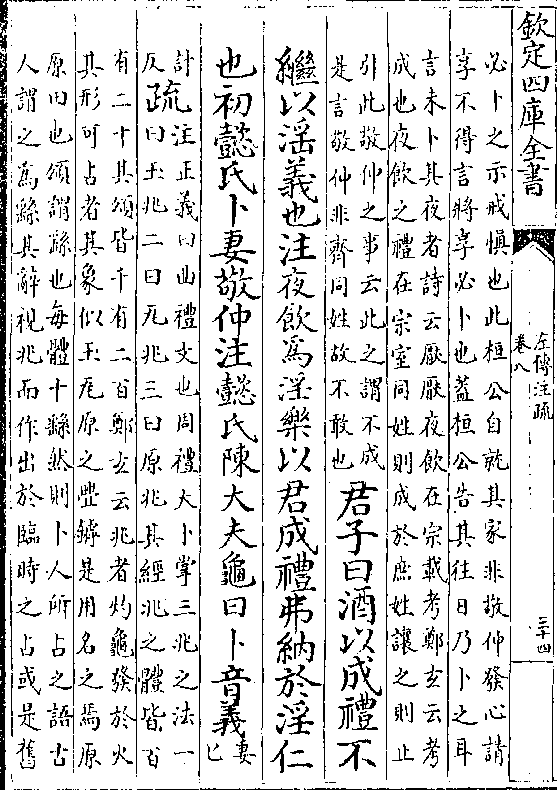 欽定四庫全書
左傳注疏
卷八
三十四
必卜之示戒慎也此桓公自就其家非敬仲發心請
享不得言將享必卜也蓋桓公告其往日乃卜之耳
言未卜其夜者詩云厭厭夜飲在宗載考鄭玄云考
成也夜飲之禮在宗室同姓則成於庶姓讓之則止
引此敬仲之事云此之謂不成
是言敬仲非齊同姓故不敢也
君子曰酒以成禮不
繼以淫義也注夜飲為淫樂以君成禮弗納於淫仁
也初懿氏卜妻敬仲注懿氏陳大夫龜曰卜音義
妻
七
計
反
疏
注正義曰曲禮文也周禮大卜掌三兆之法一
曰玉兆二曰瓦兆三曰原兆其經兆之體皆百
有二十其頌皆千有二百鄭玄云兆者灼龜發於火
其形可占者其象似玉瓦原之豐鏬是用名之焉原
原田也頌謂繇也每體十繇然則卜人所占之語古
人謂之為繇其辭視兆而作出於臨時之占或是舊